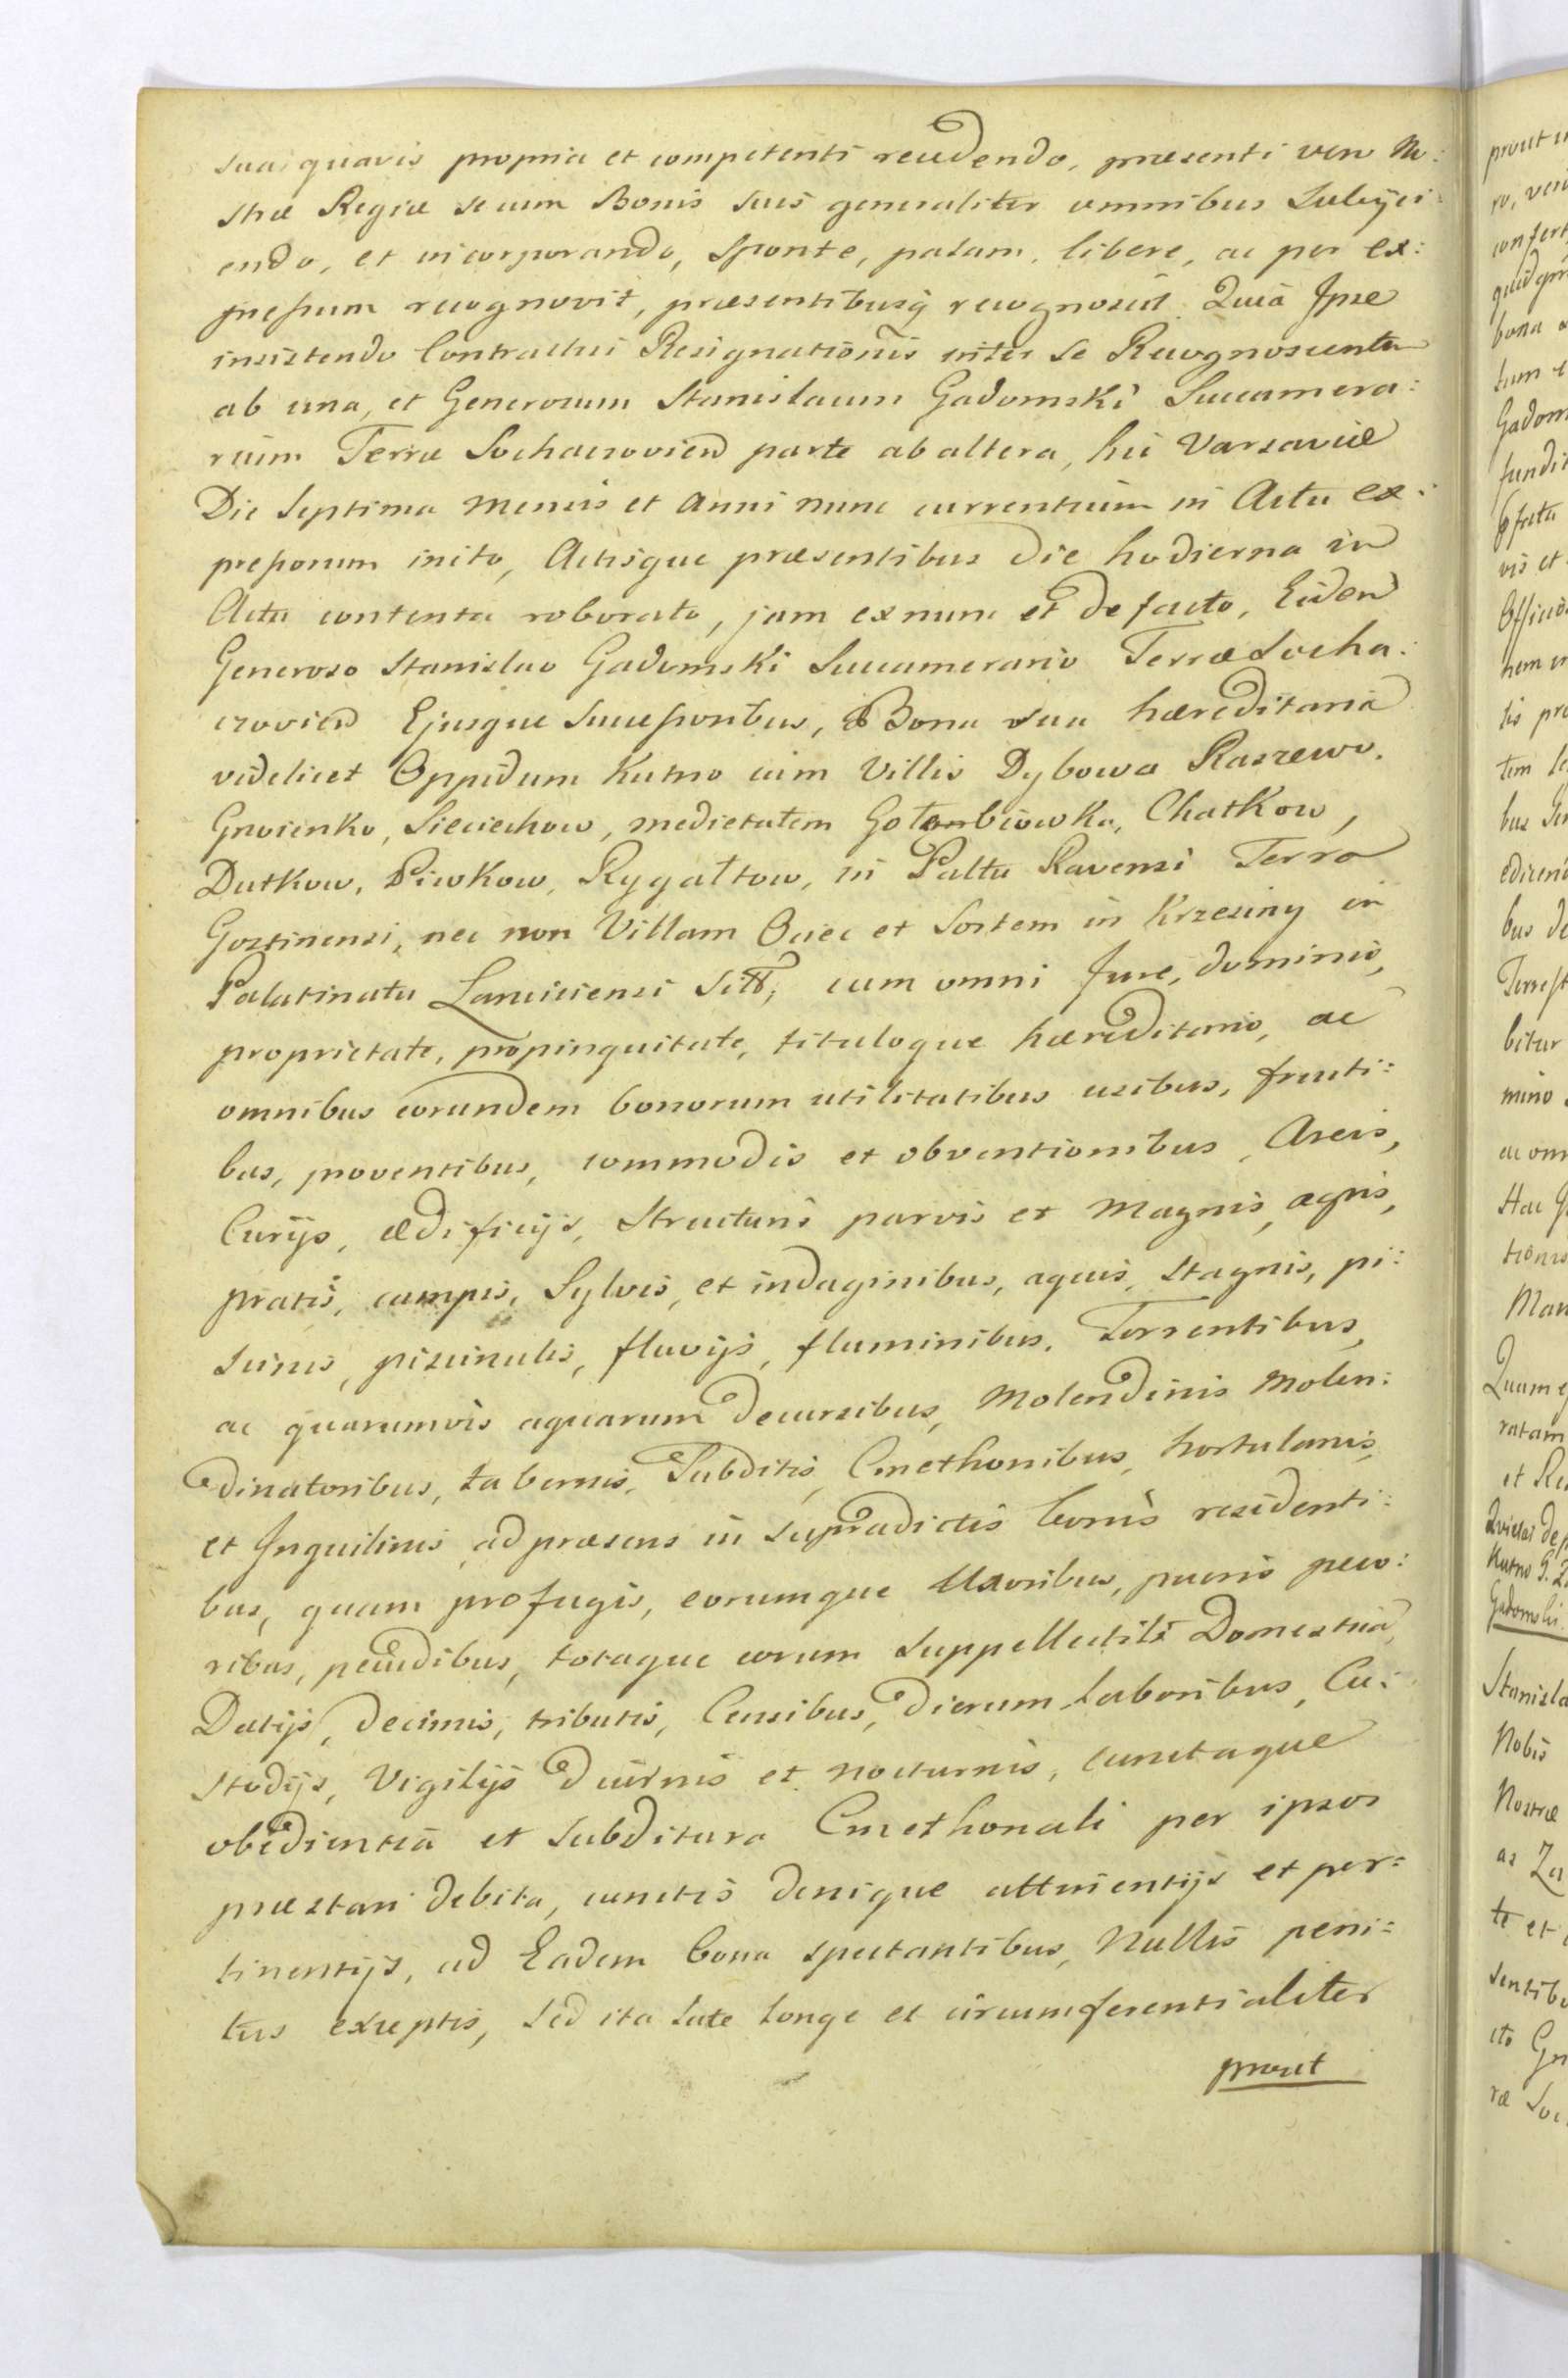 sua quavis propria et competenti recedendo, præsenti vero No:
stræ Regiæ se cum Bonis suis generaliter omnibus Subijci:
endo, et incorporando, sponte, palam, libere, ac per ex:
preſsum recognovit, præsentibusq recognoscit. Quia Ipse
insistendo Contractui Resignationis inter se Recognoscentem
ab una, et Generosum Stanislaum Gadomski Succamera:
rium Terræ Sochaczovien parte ab altera, hic Varsaviæ
Die Septima mensis et Anni nunc currentium in Actu ex:
preſsorum inito, Actisque præsentibus die hodierna in
Actu contentu roborato, jam ex nunc et de facto, Eidem
Generoso Stanislao Gadomski Succamerario Terræ Socha:
czovien Ejusque Succeſsoribus, Bona sua hæreditaria
videlicet Oppidum Kutno cum Villis Dybowa Raszewo.
Gnoienko, Sieciechow, medietatem Gołembiowka, Chatkow,
Dutkow, Piwkow, Rygałtow, in Pałtu Ravensi Terra
Gostinensi, nec non Villam Ociec et Sortem in Krzesiny in
Palatinatu Lanciciensi sitt, cum omni Jure, dominio,
proprietate, propinquitate, tituloque hæreditario, ac
omnibus eorundem bonorum utilitatibus usibus, fructi:
bus, proventibus, commodis et obventionibus, Areis,
Curijs, ædificijs, Structuris parvis et Magnis, agris,
pratis, campis, Sylvis, et indaginibus, aquis, Stagnis, pi:
scinis, piscinulis, fluvijs, fluminibus, Torrentibus,
ac quarumvis aquarum decursibus, Molendinis Molen:
dinatoribus, tabernis, Subditis, Cmethonibus, hortulanis,
et Inquilinis ad præsens in supradictis bonis residenti:
bus, quam profugis, eorumque Uxoribus, pueris peco:
ribus, pecudibus, totaque eorum Suppellectili Domestica,
Datijs, decimis, tributis, Censibus, dierum laboribus, Cu:
stodijs, Vigilijs diurnis et nocturnis, cunctaque
obedientia et Subditura Cmethonali per ipsos
præstari debita, cunctis denique attinentijs et per:
tinentijs, ad Eadem bona spectantibus, Nullis peni:
tus exceptis, Sed ita late longe et circumferentialiter
prout